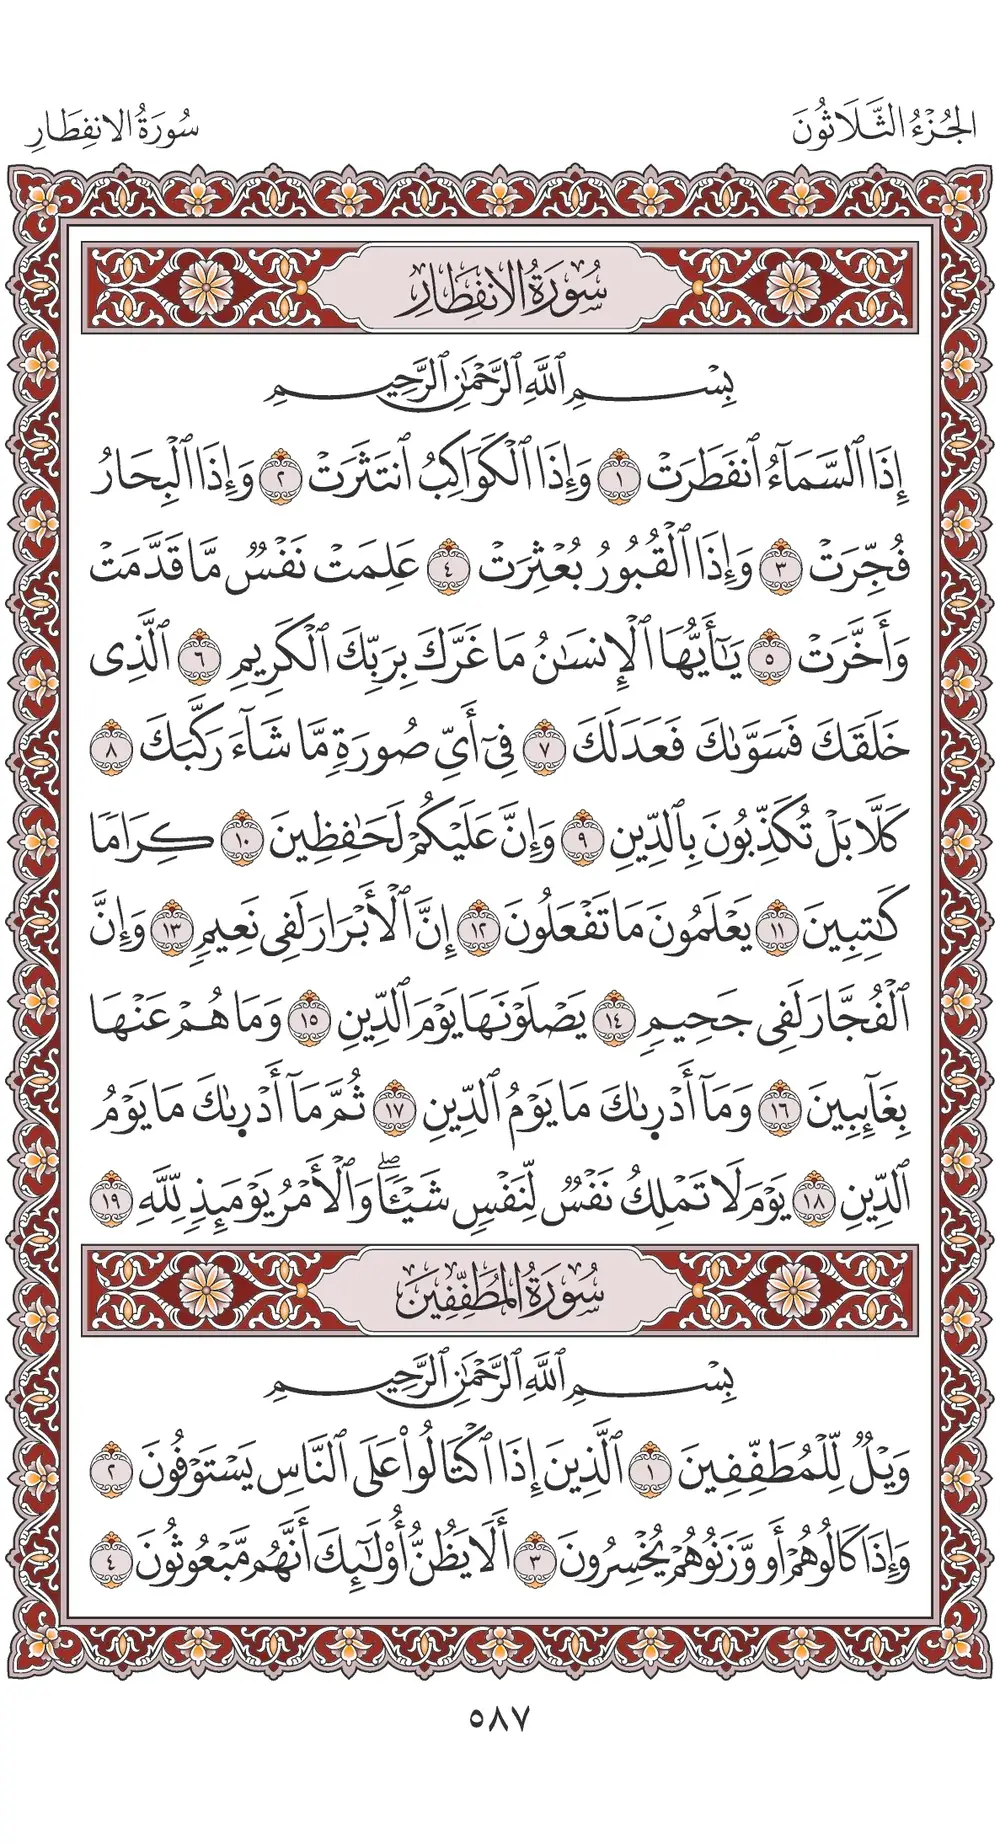 الجُزْءُ الثَّلَاثُونَ
سُورَةُ الانفِطَارِ
سُورَةُ الانفِطَارِ
بِسْمِ ٱللَّهِ ٱلرَّحْمَٰنِ ٱلرَّحِيمِ
إِذَا ٱلسَّمَآءُ ٱنفَطَرَتْ ١ وَإِذَا ٱلْكَوَاكِبُ ٱنتَثَرَتْ ٢ وَإِذَا ٱلْبِحَارُ
فُجِّرَتْ ٣ وَإِذَا ٱلْقُبُورُ بُعْثِرَتْ ٤ عَلِمَتْ نَفْسٌ مَّا قَدَّمَتْ
وَأَخَّرَتْ ٥ يَٰٓأَيُّهَا ٱلْإِنسَٰنُ مَا غَرَّكَ بِرَبِّكَ ٱلْكَرِيمِ ٦ ٱلَّذِى
خَلَقَكَ فَسَوَّىٰكَ فَعَدَلَكَ ٧ فِىٓ أَىِّ صُورَةٍ مَّا شَآءَ رَكَّبَكَ ٨
كَلَّا بَلْ تُكَذِّبُونَ بِٱلدِّينِ ٩ وَإِنَّ عَلَيْكُمْ لَحَٰفِظِينَ ١٠ كِرَامًا
كَٰتِبِينَ ١١ يَعْلَمُونَ مَا تَفْعَلُونَ ١٢ إِنَّ ٱلْأَبْرَارَ لَفِى نَعِيمٍ ١٣ وَإِنَّ
ٱلْفُجَّارَ لَفِى جَحِيمٍ ١٤ يَصْلَوْنَهَا يَوْمَ ٱلدِّينِ ١٥ وَمَا هُمْ عَنْهَا
بِغَآئِبِينَ ١٦ وَمَآ أَدْرَىٰكَ مَا يَوْمُ ٱلدِّينِ ١٧ ثُمَّ مَآ أَدْرَىٰكَ مَا يَوْمُ
ٱلدِّينِ ١٨ يَوْمَ لَا تَمْلِكُ نَفْسٌ لِّنَفْسٍ شَيْـًٔا ۖ وَٱلْأَمْرُ يَوْمَئِذٍ لِّلَّهِ ١٩
سُورَةُ المُطَفِّفِينَ
بِسْمِ ٱللَّهِ ٱلرَّحْمَٰنِ ٱلرَّحِيمِ
وَيْلٌ لِّلْمُطَفِّفِينَ ١ ٱلَّذِينَ إِذَا ٱكْتَالُوا۟ عَلَى ٱلنَّاسِ يَسْتَوْفُونَ ٢
وَإِذَا كَالُوهُمْ أَو وَّزَنُوهُمْ يُخْسِرُونَ ٣ أَلَا يَظُنُّ أُو۟لَٰٓئِكَ أَنَّهُم مَّبْعُوثُونَ ٤
٥٨٧